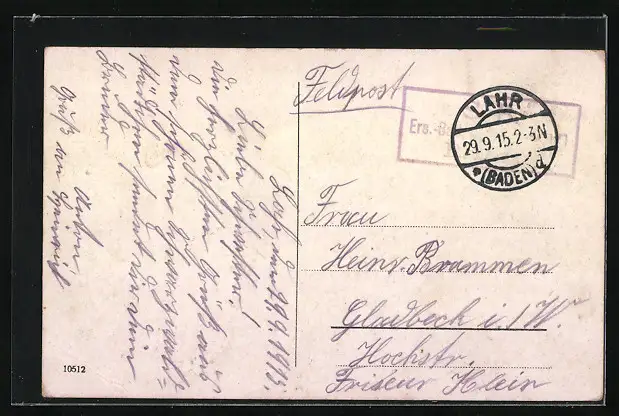 Lahr, den 29.9.1915.
Liebe Schwester!
die herzlichsten Grüße aus
dem schönen Schwarzwald-
städtchen sendet dir dein
Bruder
Anton
Gruß an Heinrich
Feldpost
Ers.-B
LAHR
29.9.15.2-3N
*(BADEN)d
Frau
Heinr. Brammen
Gladbeck i./W.
Hochstr.
Friseur Klein
10512